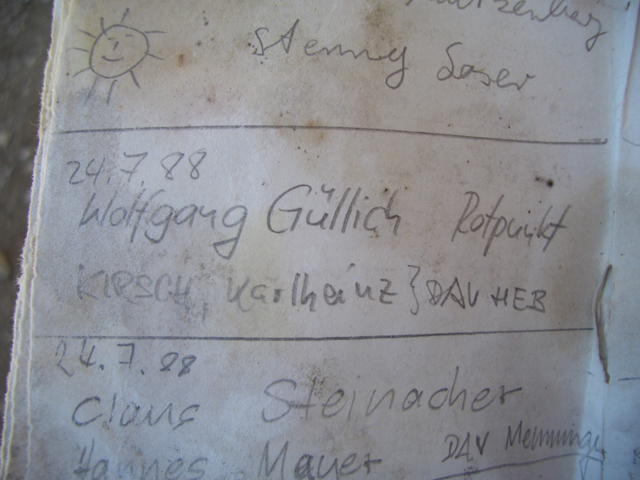 Stenny
24.7.88
Wolfgang Güllich Rotpunkt
KIRSCH, Karlheinz } DAV HEB
24.7.88
Claus Steinacher
Hannes Mayer DAV Memminge